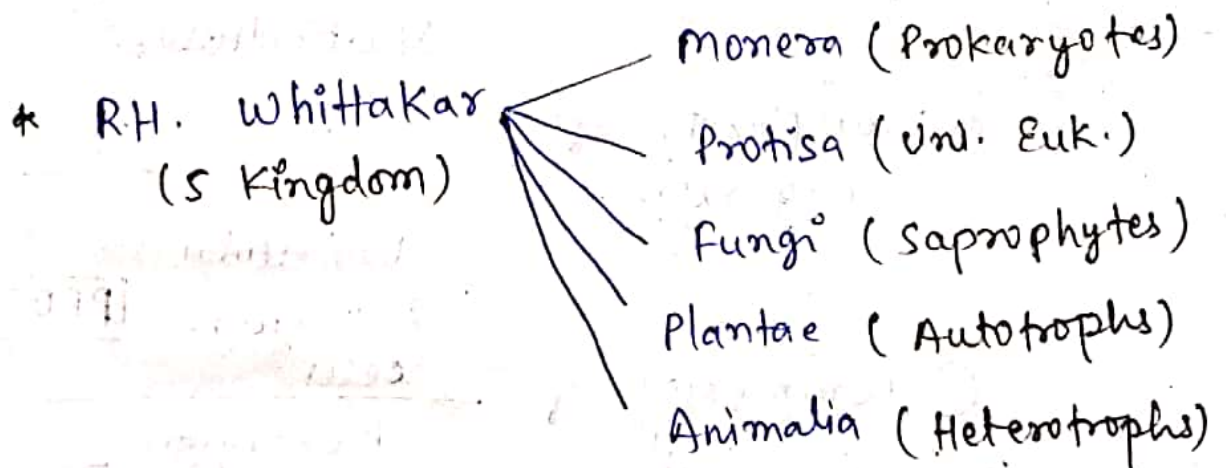 * R.H. Whittakar
(5 Kingdom)
Monera (Prokaryotes)
Protisa (Uni. Euk.)
Fungi (Saprophytes)
Plantae (Autotrophs)
Animalia (Heterotrophs)